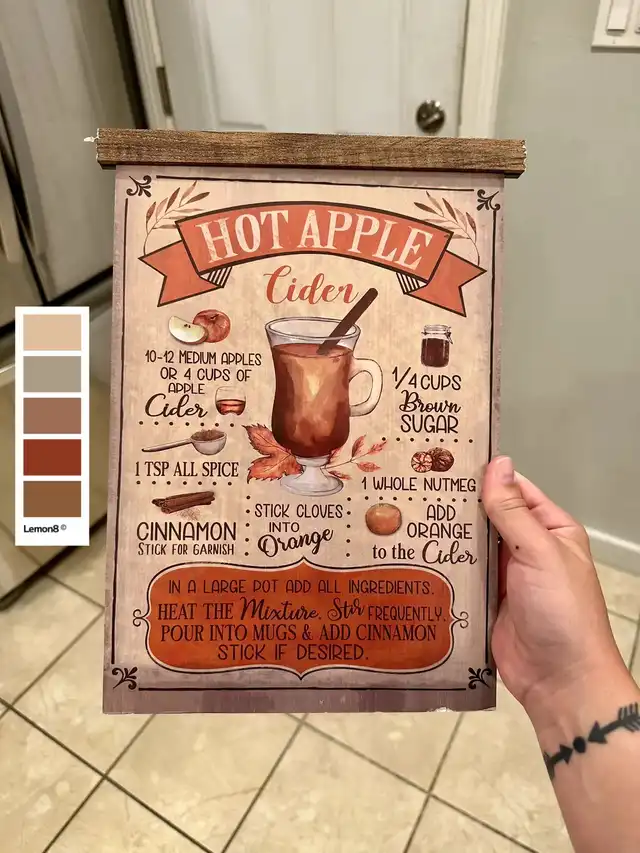 HOT APPLE
Cider
10-12 MEDIUM APPLES
OR 4 CUPS OF
APPLE
Cider
1/4 CUPS
Brown
SUGAR
1 TSP ALL SPICE
1 WHOLE NUTMEG
CINNAMON
STICK FOR GARNISH
STICK CLOVES
INTO
Orange
ADD
ORANGE
to the Cider
IN A LARGE POT ADD ALL INGREDIENTS.
HEAT THE Mixture. Stir FREQUENTLY.
POUR INTO MUGS & ADD CINNAMON
STICK IF DESIRED.
Lemon8 ©